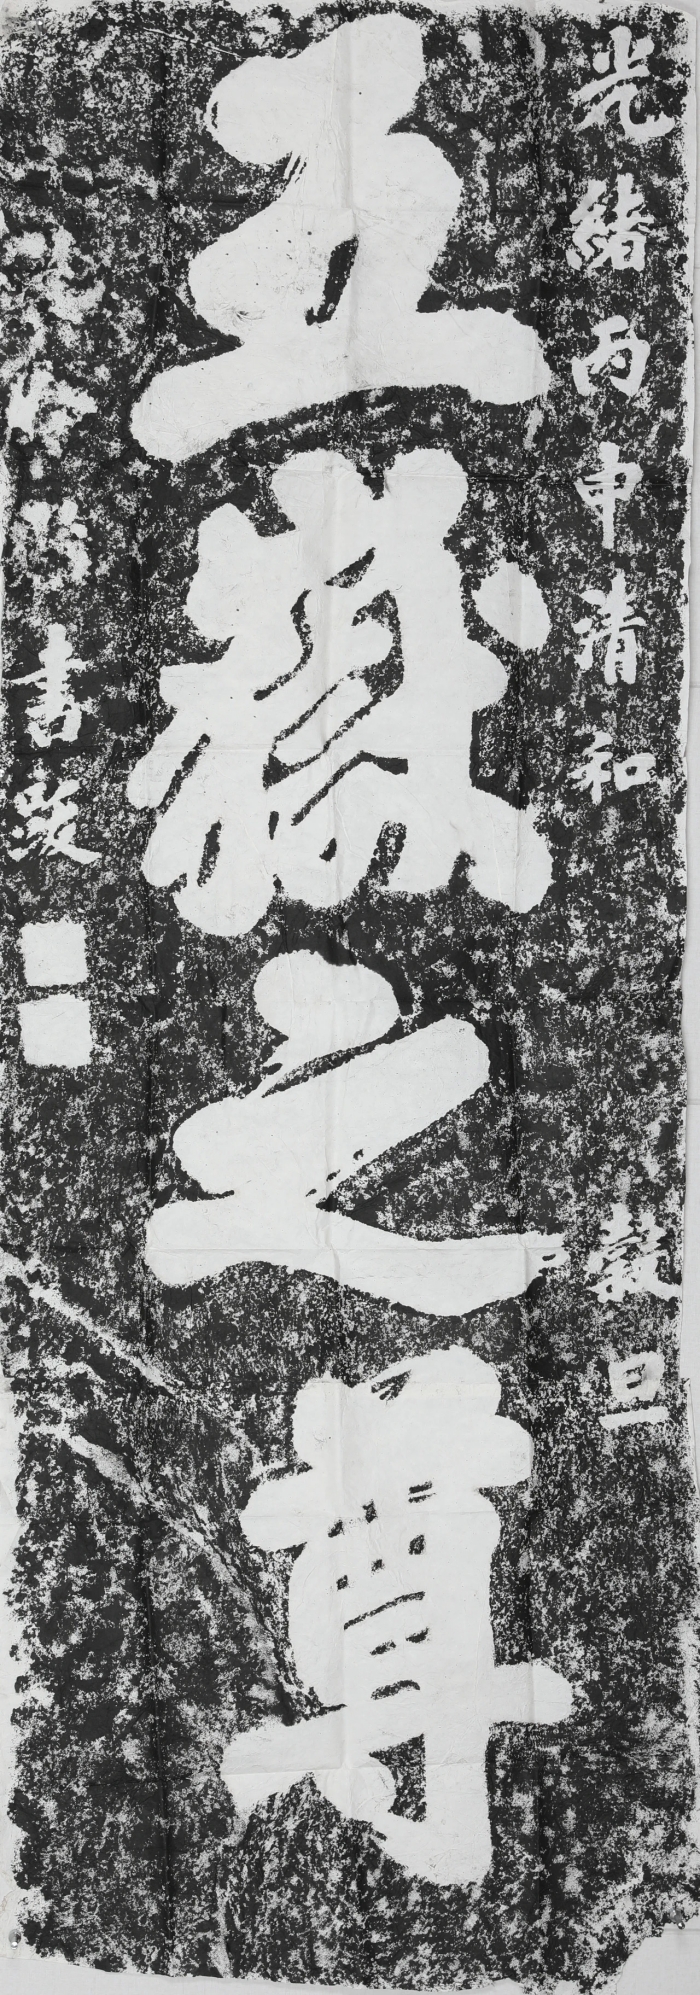 光緒丙申清和穀旦
五嶽之尊
書題